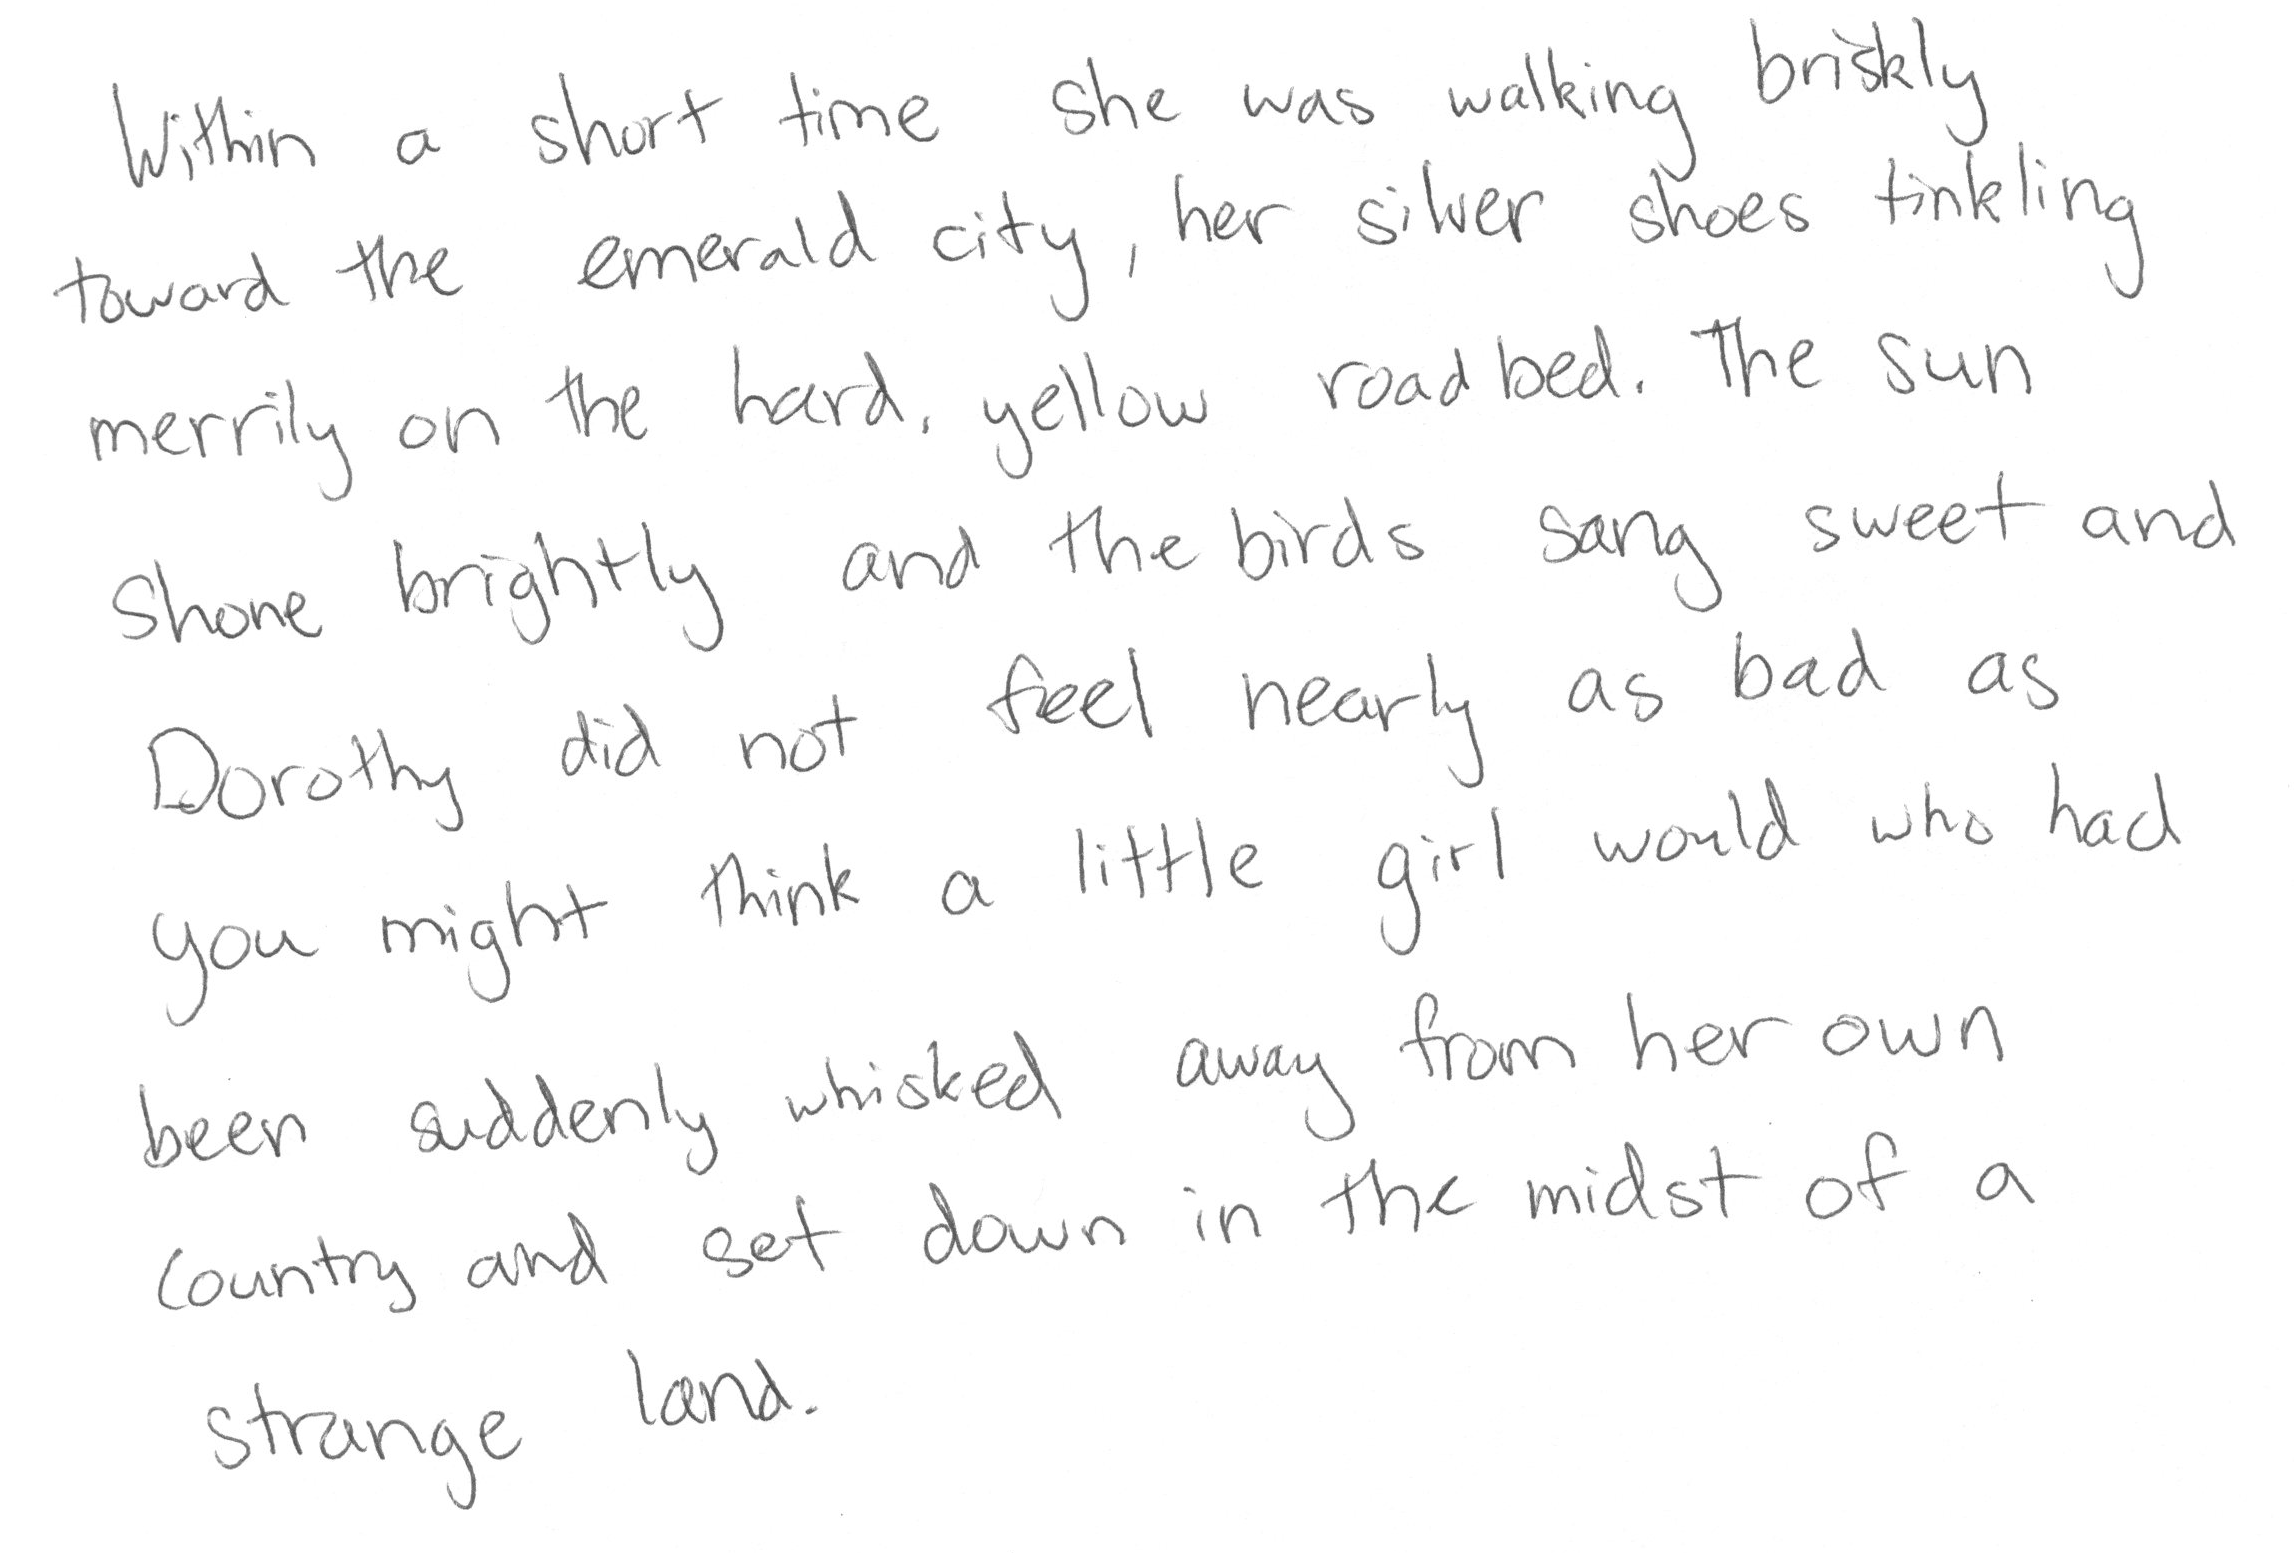 Within a short time she was walking briskly
toward the emerald city, her silver shoes tinkling
merrily on the hard, yellow roadbed. The sun
shone brightly and the birds sang sweet and
Dorothy did not feel nearly as bad as
you might think a little girl would who had
been suddenly whisked away from her own
country and set down in the midst of a
strange land.